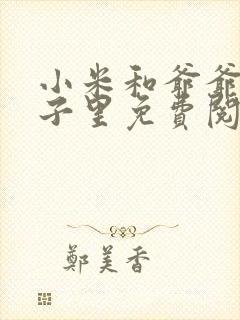 小米和爷爷
子里免費閱
鄭美香